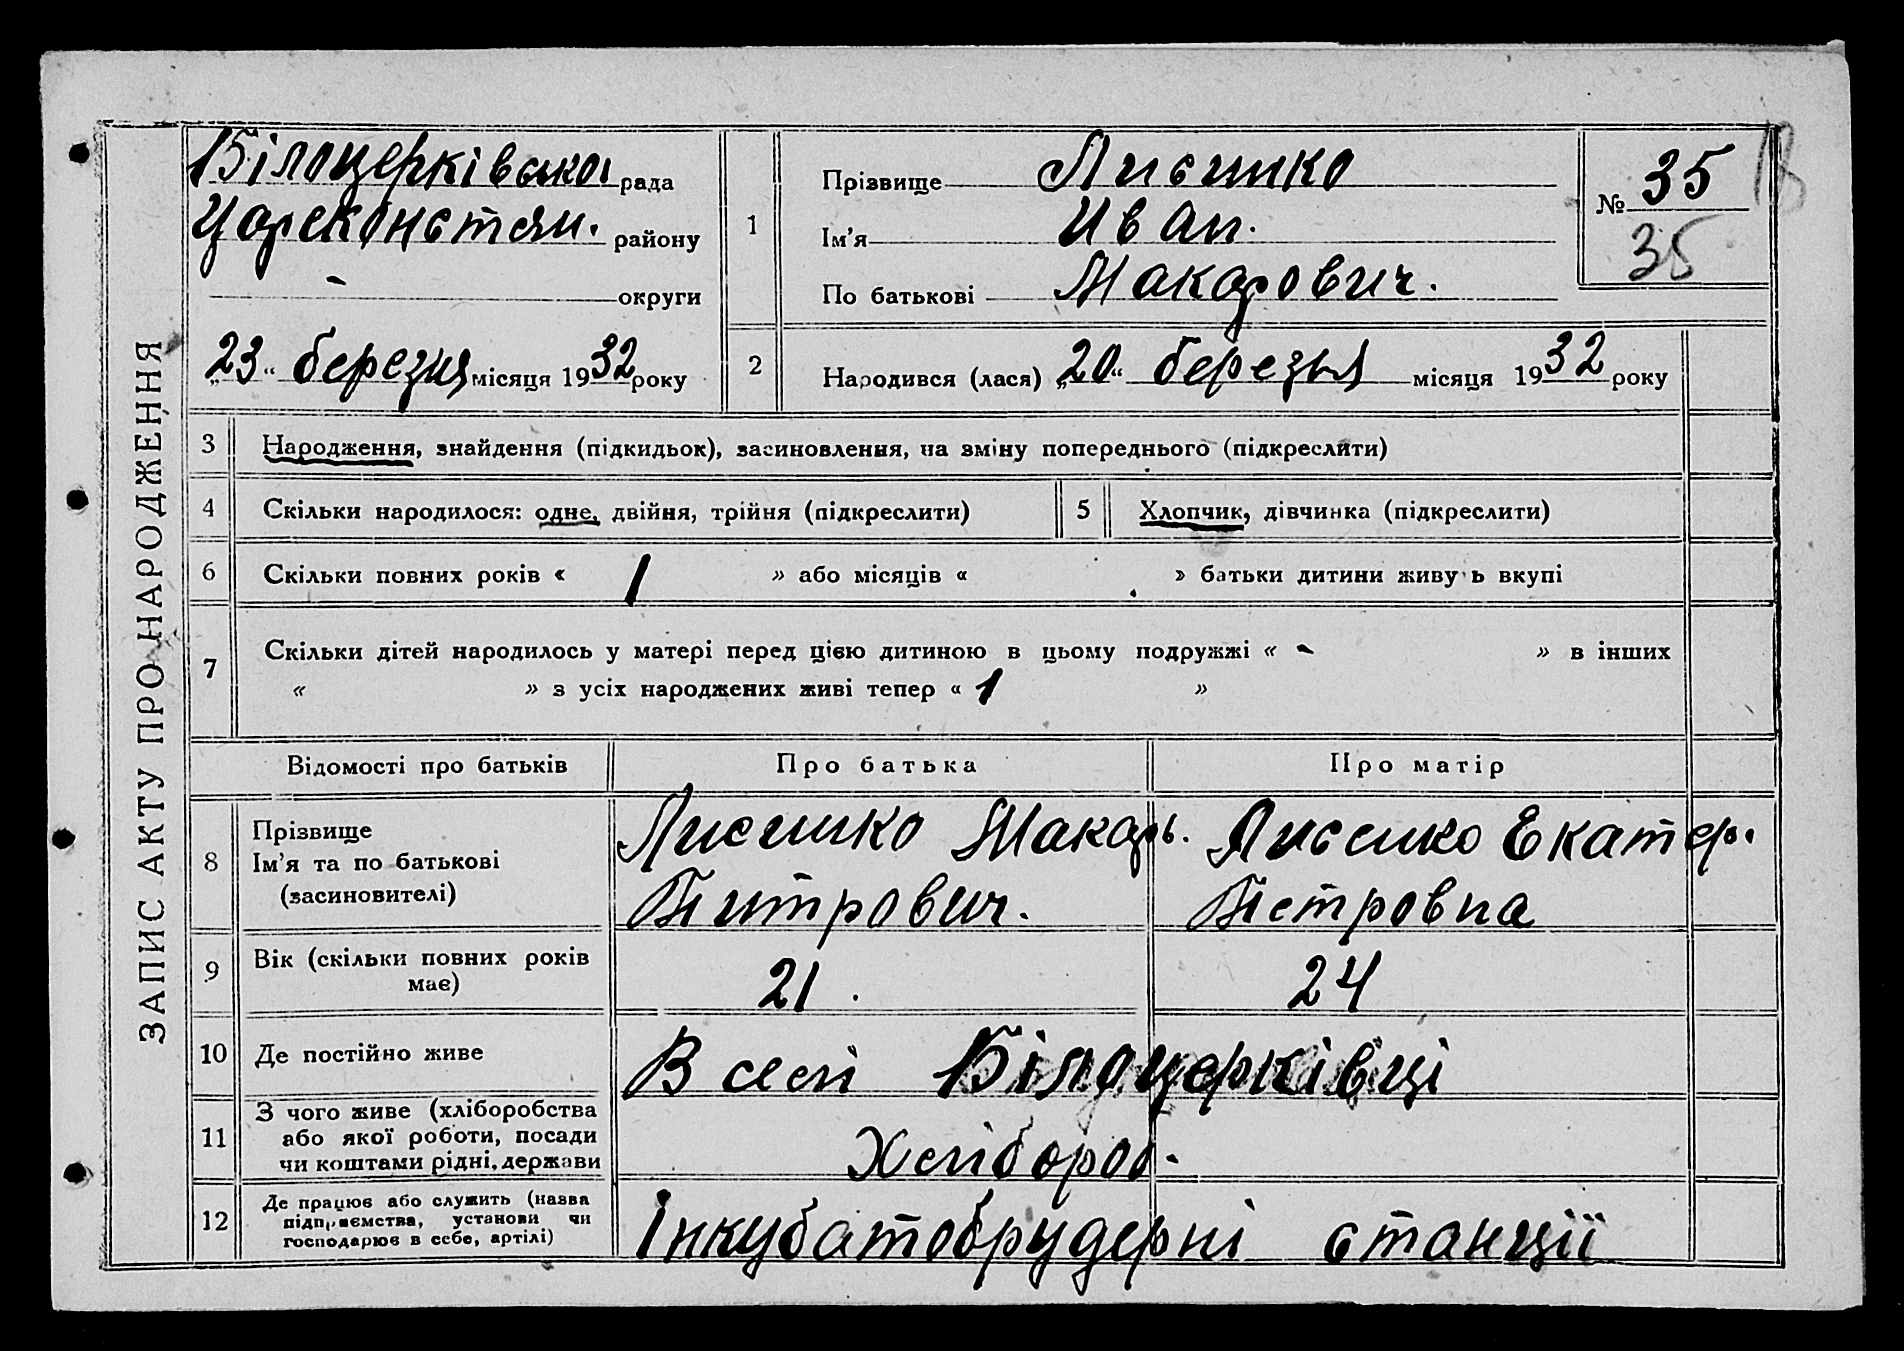 ЗАПИС АКТУ ПРО НАРОДЖЕННЯ
Білоцерківської рада
Цареконстян. району
- округи
„23“ березня місяця 1932 року
1
Прізвище Лисенко
Ім’я Иван.
По батькові Макарович.
№ 35
35
2
Народився (лася) „20“ березня місяця 1932 року
3 Народження, знайдення (підкидьок), засиновлення, на зміну попереднього (підкреслити)
4 Скільки народилося: одне, двійня, трійня (підкреслити)
5 Хлопчик, дівчинка (підкреслити)
6 Скільки повних років « 1 » або місяців « » батьки дитини живуть вкупі
7 Скільки дітей народилось у матері перед цією дитиною в цьому подружжі « - » в інших
« » з усіх народжених живі тепер « 1 »
Відомості про батьків Про батька Про матір
8 Прізвище
Ім’я та по батькові
(засиновителі)
Лисенко Макарь.
Питрович.
Лисенко Екатер.
Петровна
9 Вік (скільки повних років
має)
21.
24
10 Де постійно живе
В селі Білоцерківці
11 З чого живе (хліборобства
або якої роботи, посади
чи коштами рідні, держави
Хлібороб.
12 Де працює або служить (назва
підприємства, установи чи
господарює в себе, артілі)
Інкубатобрудерні станції